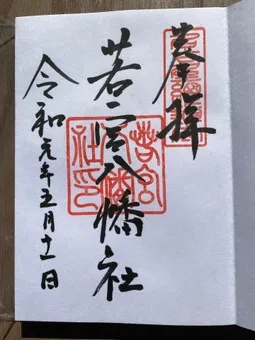 奉拝
若宮八幡社
令和元年五月十一日